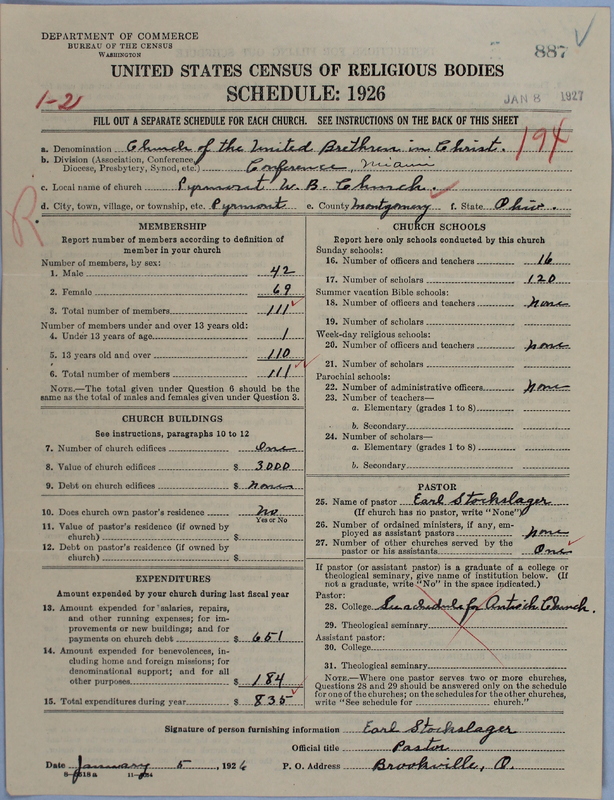 DEPARTMENT OF COMMERCE
BUREAU OF THE CENSUS
WASHINGTON
887
UNITED STATES CENSUS OF RELIGIOUS BODIES
SCHEDULE: 1926
1-2
JAN 8 1927
FILL OUT A SEPARATE SCHEDULE FOR EACH CHURCH. SEE INSTRUCTIONS ON THE BACK OF THIS SHEET
194
a. Denomination Church of the United Brethren in Christ.
b. Division (Association, Conference, Diocese, Presbytery, Synod, etc.) Conference, Miami
c. Local name of church Pyrmont U. B. Church.
d. City, town, village, or township, etc. Pyrmont e. County Montgomery f. State Ohio.
MEMBERSHIP
Report number of members according to definition of
member in your church
Number of members, by sex:
1. Male 42
2. Female 69
3. Total number of members 111
Number of members under and over 13 years old:
4. Under 13 years of age 1
5. 13 years old and over 110
6. Total number of members 111
NOTE.—The total given under Question 6 should be
same as the total of males and females given under Question 3.
CHURCH BUILDINGS
See instructions, paragraphs 10 to 12
7. Number of church edifices One
8. Value of church edifices $ 3000
9. Debt on church edifices $ none
10. Does church own pastor's residence No
Yes or No
11. Value of pastor's residence (if owned by
church) $
12. Debt on pastor's residence (if owned by
church) $
EXPENDITURES
Amount expended by your church during last fiscal year
13. Amount expended for salaries, repairs,
and other running expenses; for im-
provements or new buildings; and for
payments on church debt $ 651
14. Amount expended for benevolences, in-
cluding home and foreign missions; for
denominational support; and for all
other purposes $ 184
15. Total expenditures during year $ 835
CHURCH SCHOOLS
Report here only schools conducted by this church
Sunday schools:
16. Number of officers and teachers 16
17. Number of scholars 120
Summer vacation Bible schools:
18. Number of officers and teachers none
19. Number of scholars
Week-day religious schools:
20. Number of officers and teachers none
21. Number of scholars
Parochial schools:
22. Number of administrative officers none
23. Number of teachers—
a. Elementary (grades 1 to 8)
b. Secondary
24. Number of scholars—
a. Elementary (grades 1 to 8)
b. Secondary
PASTOR
25. Name of pastor Earl Stockslager
(If church has no pastor, write "None")
26. Number of ordained ministers, if any, em-
ployed as assistant pastors none
27. Number of other churches served by the
pastor or his assistants One
If pastor (or assistant pastor) is a graduate of a college or
theological seminary, give name of institution below. (If
not a graduate, write "No" in the space indicated.)
Pastor:
28. College See schedule for Antioch Church.
29. Theological seminary
Assistant pastor:
30. College
31. Theological seminary
NOTE.—Where one pastor serves two or more churches,
Questions 28 and 29 should be answered only on the schedule
for one of the churches; on the schedules for the other churches,
write "See schedule for church."
Signature of person furnishing information Earl Stockslager
Official title Pastor
Date January 5, 1926 P. O. Address Brookville, O.